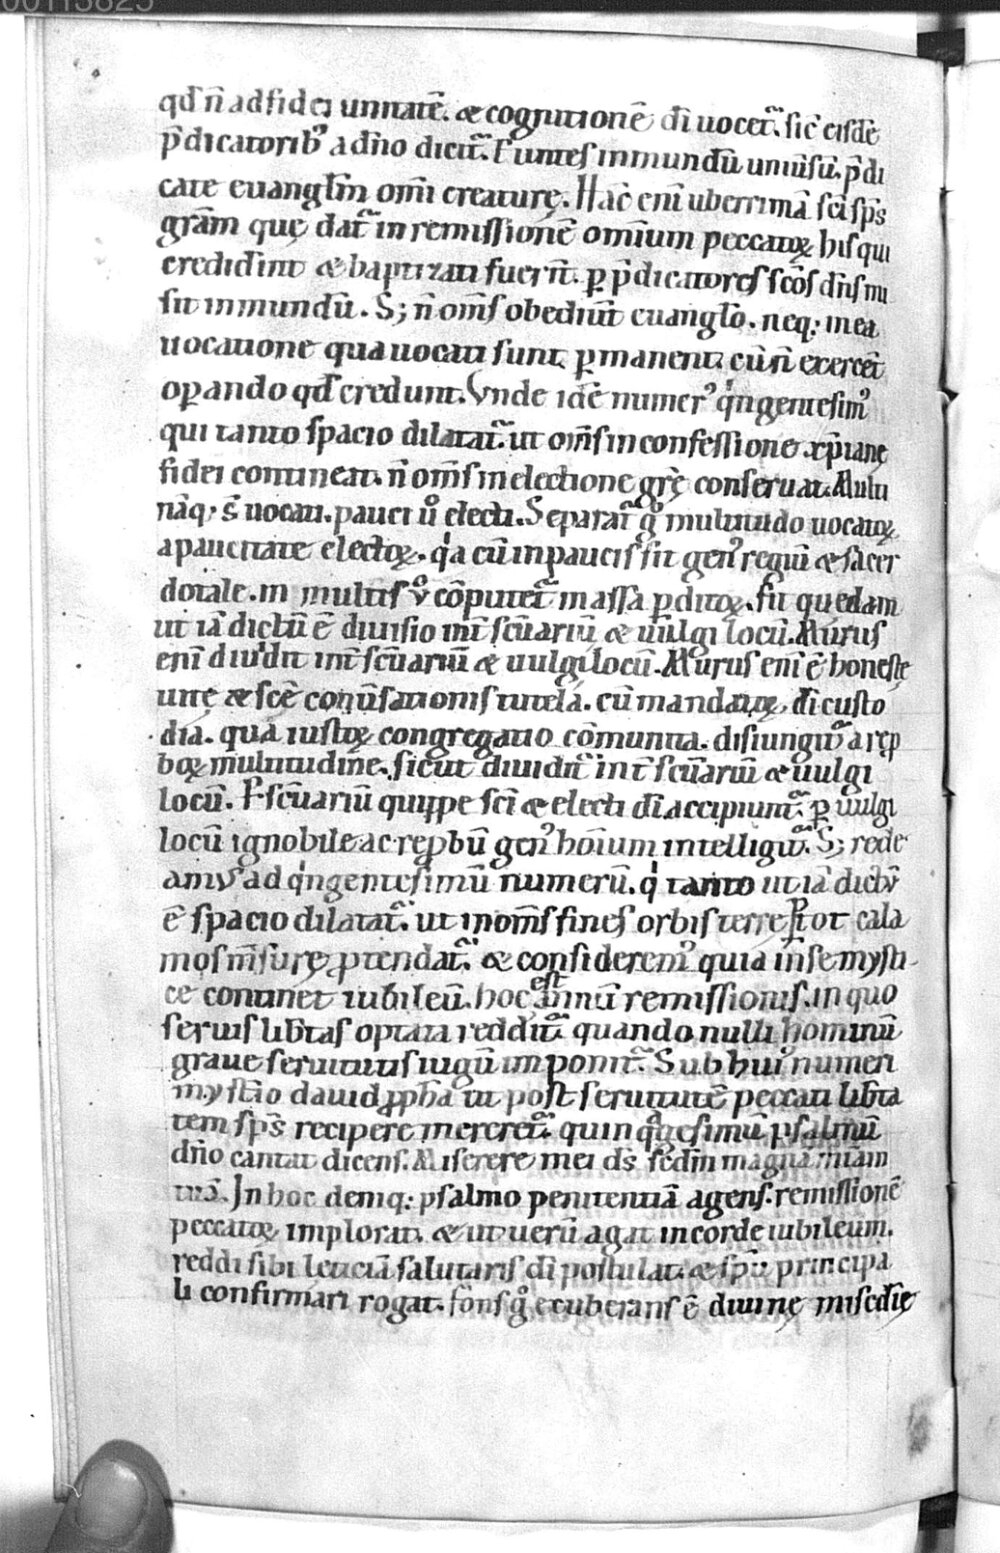 00113825
qđ n̄ ad fidei unitatē. & cognitionē dī uocet᷑. sic̄ eisdē
p̄dicatorib᷒ a dn̄o dicit᷑. Euntes in mundū uniūsū. p̄di
cate euangliū om̄i creaturę. Hac̄ eni uberrimā sc̄i sp̄s
grām quę dat᷑ in remissionē omium peccatoꝝ his qui
credidint & baptizati fuerīt. ꝑ p̄dicatores scōs dn̄s mi
sit in mundū. S; n̄ om̄s obediūt euanglo. neq; in ea
uocatione qua uocati sunt ꝑmanent. cū n̄ exercēt
oꝑando qđ credunt. Vnde idē numer᷒ qͥngentesim᷒
qui tanto spacio dilatat᷑. ut om̄s in confessione xp̄ianę
fidei contineat. n̄ om̄s in electione grę̄ conseruat. Multi
nāq; s̄ uocati. pauci u̾o electi. Separat᷑ g̊ multitudo uocatoꝝ
a paucitate electoꝝ. qͥa cū in paucis sit gen᷒ regiū & sacer
dotale. in multis v̊ cōputet᷑ massa ꝑditoꝝ. fit quędam
ut iā dictū ē diuisio int̄ scūariū & uulgi locū. Murus
enī diuidit int̄ scūariū & uulgi locū. Murus enī ē honestę
uitę & scē conūsationis tutela. cū mandatoꝝ dī custo
dia. qua iustoꝝ congregatio cōmunita. disiungit᷑ a rep̱
boꝝ multitudine. sicut diuidit᷑ int̄ scūariū & uulgi
locū. P scūariū quippe sc̄i & electi dī accipiunt᷑. ꝑ uulgi
locū ignobile ac rep̱bū gen᷒ hoīum intelligit᷑. S; rede
am᷒ ad qͥngentesimū numerū. qͥ tanto ut iā dictū
ē spacio dilatat᷑. ut in om̄s fines orbis terre ptot cala
mos m̄surę ꝓtendat᷑. & considerem᷒ quia in se mysti
ce continet iubileū. hoc est annū remissionis. in quo
seruis lib̄tas optata reddit᷑ quando nulli hominū
graue seruitutis iugū imponit᷑. Sub hui᷒ numeri
mystio dauid ꝓph̄a ut post seruitutē peccati lib̄ta
tem sp̄s reciperc mereret᷑. quinqͣgesimū psalmū
dn̄o cantat dicens. Miserere mei ds̄ scdm magnā miam
tuā. In hoc deniq; psalmo penitentiā agens. remissionē
peccatoꝝ implorat. & ut uerū agat in corde iubileum.
reddi sibi leticiā salutaris dī postulat. & sp̄u principa
li confirmari rogat. fons g̊ exuberans ē diuinę miscdię